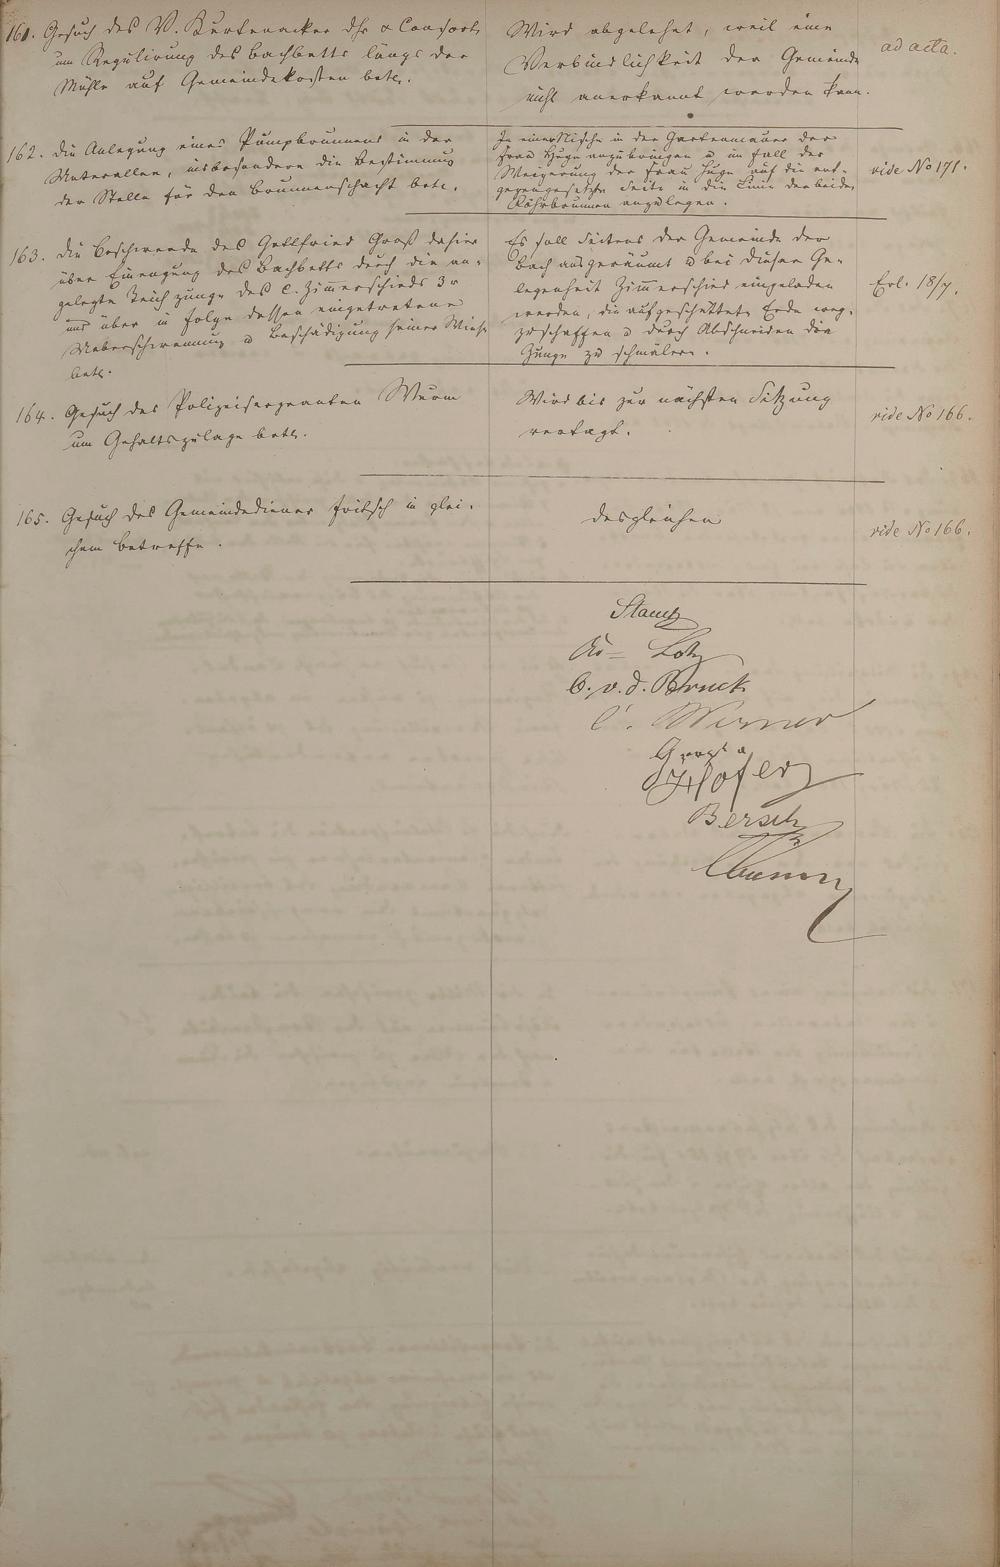 161. Gesuch des V. Kurtenacker dhr & Consorte
um Regulirung des Bachbetts längs der
Mühle auf Gemeindekosten betr.
Wird abgelehnt, weil eine
Verbindlichkeit der Gemeinde
nicht anerkannt werden kann.
ad acta.
162. Die Anlegung eines Pumpbrunnens in der
Unterallee, insbesondere die Bestimmung
der Stelle für den Brunnenschacht betr.
In einer Nische in der Gartenmauer der
Frau Huge anzubringen u im Fall der
Weigerung der Frau Huge auf die ent-
gegengesetzte Seite in die Linie der beiden
Röhrbrunnen anzulegen.
vide No 171.
163. Die Beschwerde des Gottfried Groß dahier
über Einengung des Bachbetts durch die an-
gelegte Teichzunge des C. Zimmerschied 3r
und über in Folge dessen eingetretene
Ueberschwemmung u Beschädigung seiner Wiese
betr.
Es soll Seitens der Gemeinde der
Bach ausgeräumt u bei dieser Ge-
legenheit Zimmerschied eingeladen
werden, die aufgeschüttete Erde weg-
zuschaffen u durch Abschneiden die
Zunge zu schmälern.
Erl. 18/7.
164. Gesuch des Polizeisergeanten Wurm
um Gehaltszulage betr.
Wird bis zur nächsten Sitzung
vertagt.
vide No 166.
165. Gesuch des Gemeindediener Fritsch in glei-
chem Betreffe.
desgleichen
vide No 166.
Stamp
Lotz
C. v. d. Bruck
C. Werner
Hofer
Bersch